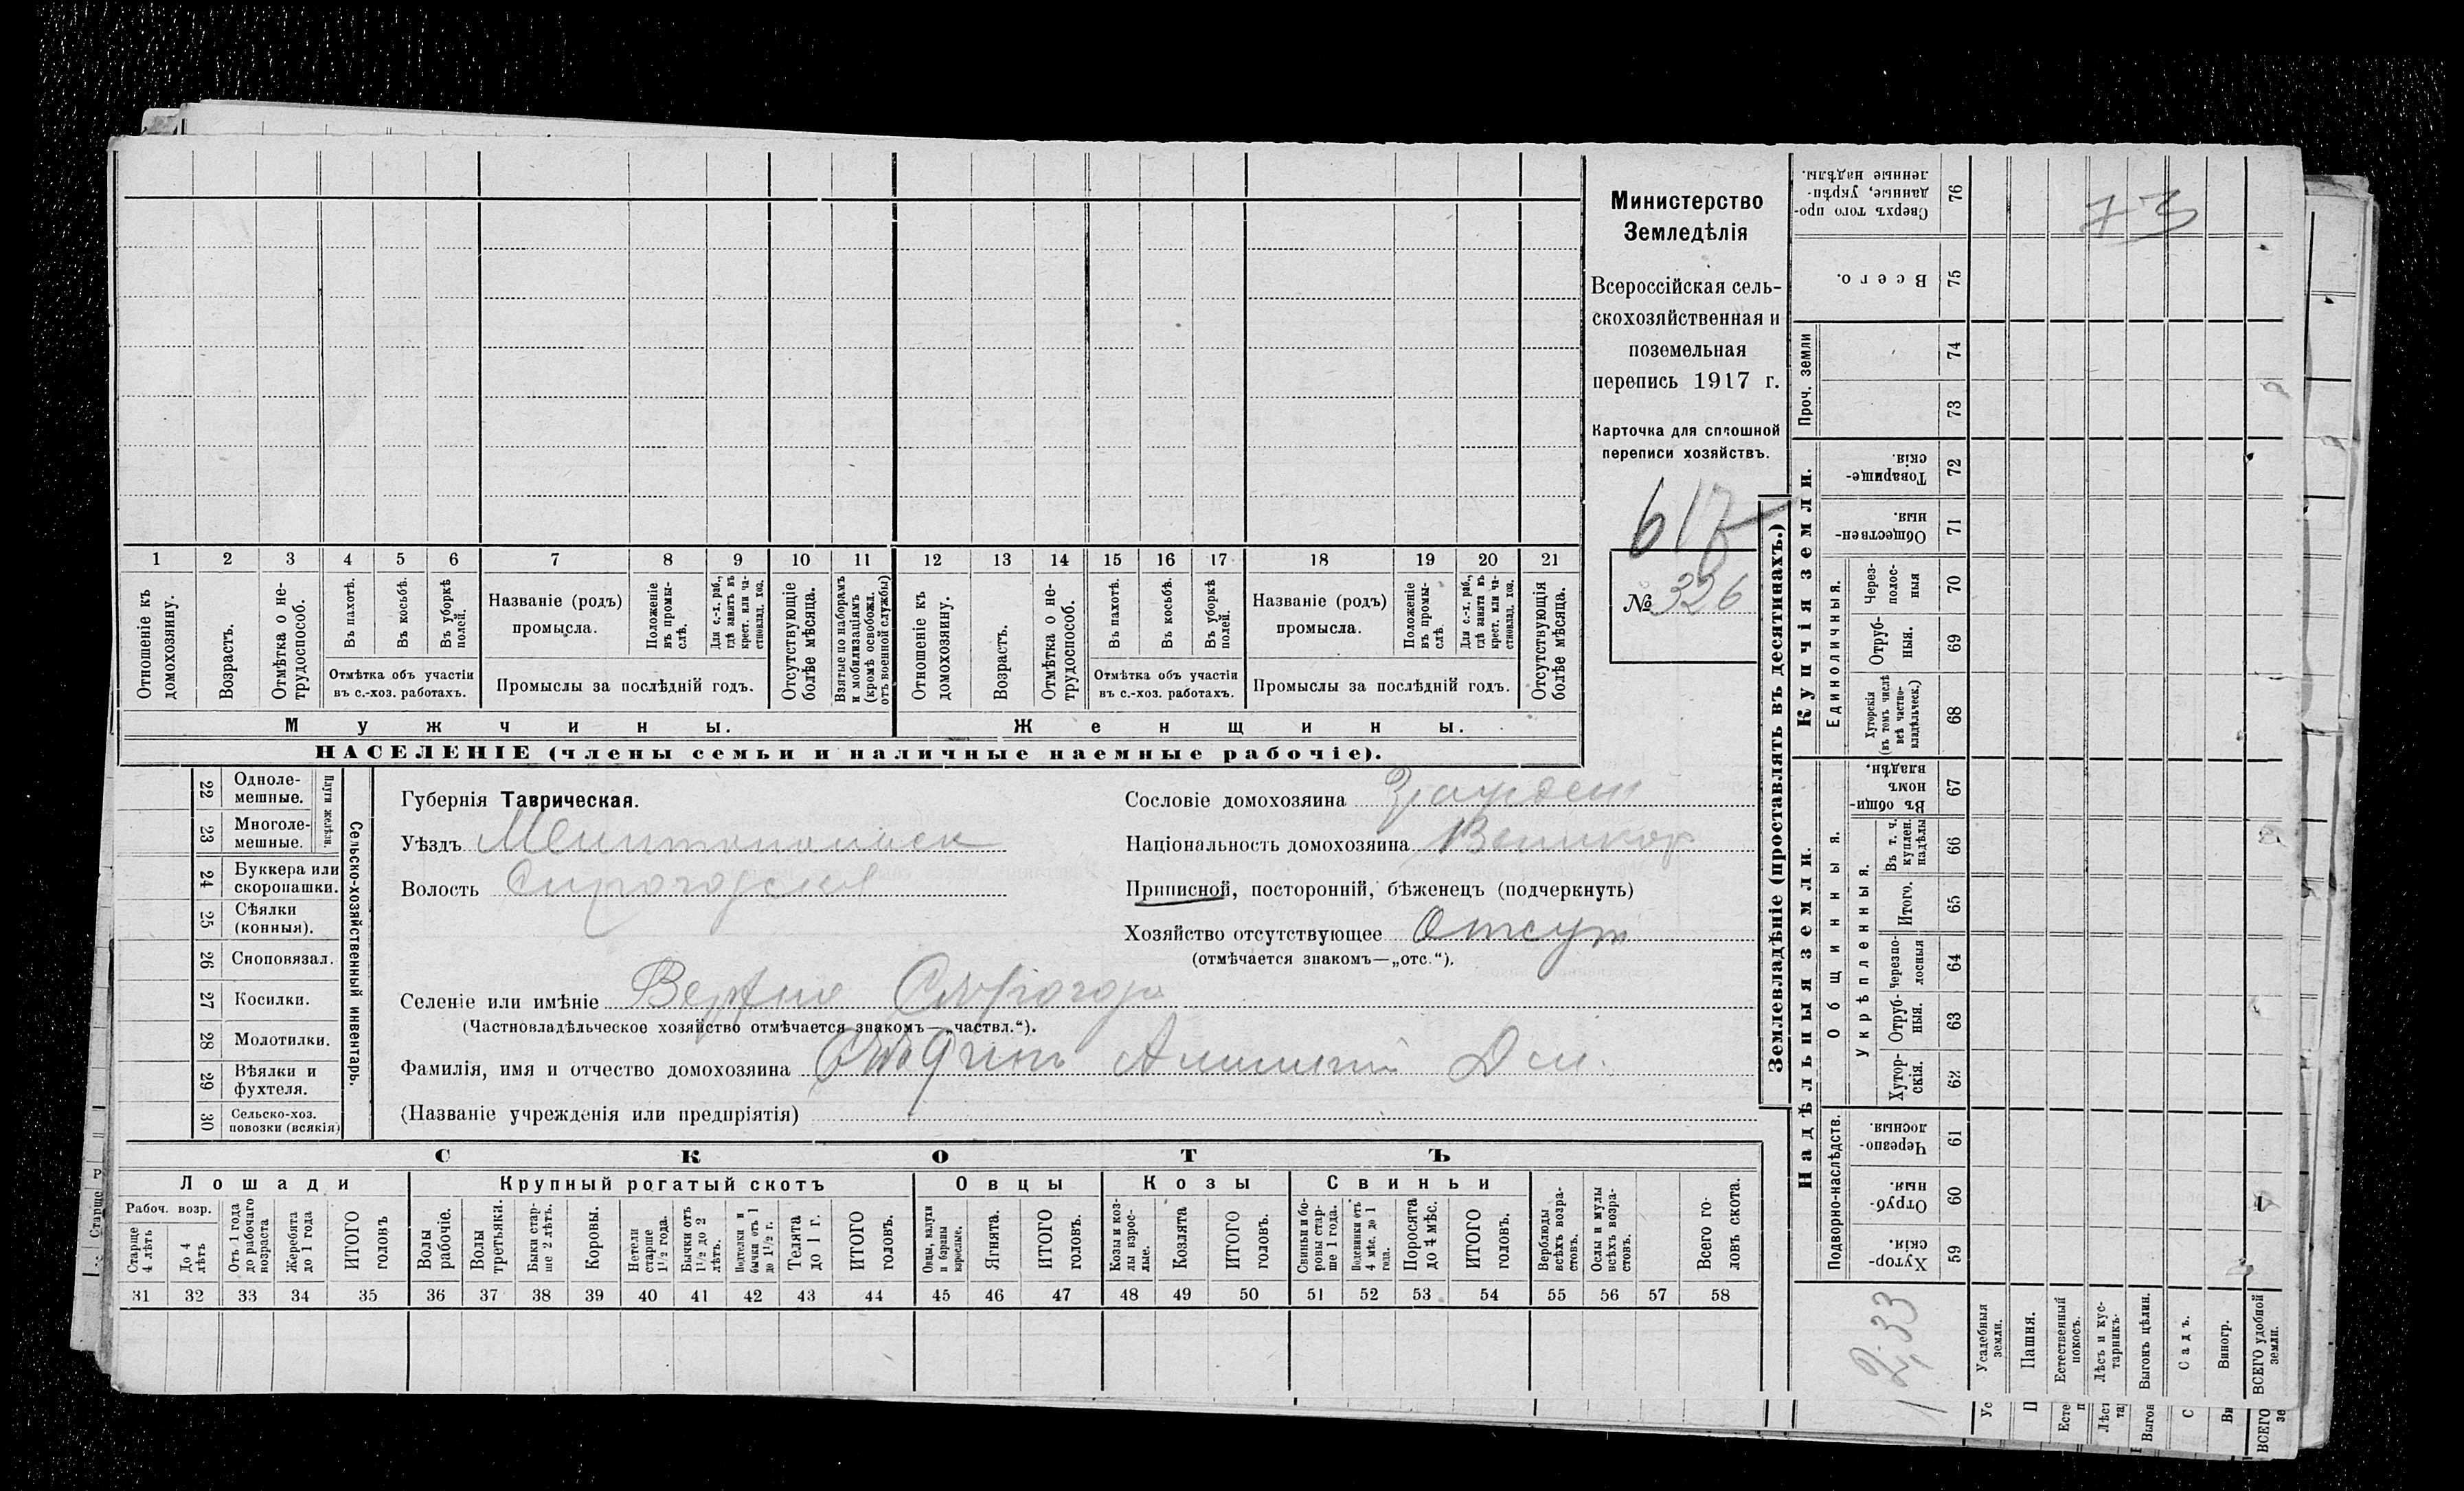 Министерство
Земледѣлія
Всероссійская сель-
скохозяйственная и
поземельная
перепись 1917 г.
Карточка для сплошной
переписи хозяйствъ.
617
№ 326
1 2 3 4 5 6 7 8 9 10 11 12 13 14 15 16 17 18 19 20 21
Отношеніе къ домохозяину.
Возрастъ.
Отмѣтка о не-трудоспособ.
Въ пахотѣ.
Въ косьбѣ.
Въ уборкѣ полей.
Отмѣтка объ участіи
въ с.-хоз. работахъ.
Названіе (родъ)
промысла.
Положеніе въ промы-слѣ.
Для с.-х. раб., гдѣ занятъ въ крест. или ча-стновлад. хоз.
Промыслы за послѣдній годъ.
Отсутствующіе болѣе мѣсяца.
Взятые по наборамъ и мобилизаціямъ (кромѣ освобожд. отъ военной службы)
Отношеніе къ домохозяину.
Возрастъ.
Отмѣтка о не-трудоспособ.
Въ пахотѣ.
Въ косьбѣ.
Въ уборкѣ полей.
Отмѣтка объ участіи
въ с.-хоз. работахъ.
Названіе (родъ)
промысла.
Положеніе въ промы-слѣ
Для с.-х. раб., гдѣ занята въ крест. или ча-стновлад. хоз.
Промыслы за послѣдній годъ.
Отсутствующія болѣе мѣсяца.
Мужчины.
Женщины.
НАСЕЛЕНІЕ (члены семьи и наличные наемные рабочіе).
Сельско-хозяйственный инвентарь.
Плуги желѣзн.
22 Одноле-мешные.
23 Многоле-мешные.
24 Буккера или скоропашки.
25 Сѣялки (конныя).
26 Сноповязал.
27 Косилки.
28 Молотилки.
29 Вѣялки и фухтеля.
30 Сельско-хоз. повозки (всякія)
Губернія Таврическая.
Уѣздъ Мелитопольск
Волость Сирогозская
Сословіе домохозяина
Національность домохозяина Великор
Приписной, посторонній, бѣженецъ (подчеркнуть)
Хозяйство отсутствующее Отсут
(отмѣчается знакомъ—„отс.“).
Селеніе или имѣніе Верхние
(Частновладѣльческое хозяйство отмѣчается знакомъ—„частвл.“).
Фамилія, имя и отчество домохозяина
(Названіе учрежденія или предпріятія)
СКОТЪ
Лошади
Крупный рогатый скотъ
Овцы
Козы
Свиньи
Рабоч. возр.
Старще 4 лѣтъ
До 4 лѣтъ
Отъ 1 года до рабочаго возраста
Жеребята до 1 года
ИТОГО головъ
Волы рабочіе.
Волы третьяки.
Быки стар-ше 2 лѣтъ.
Коровы.
Нетели старше 1½ года.
Бычки отъ 1½ до 2 лѣтъ.
Подтелки и бычки отъ 1 до 1½ г.
Телята до 1 г.
ИТОГО головъ.
Овцы, валухи и бараны взрослые.
Ягнята.
ИТОГО головъ.
Козы и коз-лы взрос-лые.
Козлята
ИТОГО головъ.
Свиньи и бо-ровы стар-ше 1 года.
Подсвинки отъ 4 мѣс. до 1 года.
Поросята до 4 мѣс.
ИТОГО головъ.
Верблюды всѣхъ возра-стовъ.
Ослы и мулы всѣхъ возра-стовъ.
Всего го-ловъ скота.
31 32 33 34 35 36 37 38 39 40 41 42 43 44 45 46 47 48 49 50 51 52 53 54 55 56 57 58
Землевладѣніе (проставлять въ десятинахъ.)
Надѣльныя земли.
Купчія земли.
Проч. земли
Подворно-наслѣдств.
Общинныя.
Укрѣпленныя.
Единоличныя.
Сверхъ того про-данные, укрѣп-ленные надѣлы. 76
Всего. 75
74
73
Товарище-скія. 72
Обществен-ныя. 71
Через-полос-ныя 70
Отруб-ныя. 69
Хуторскія (въ томъ числѣ всѣ частно-владѣльческ.) 68
Въ общин-номъ владѣн. 67
Въ т. ч. куплен. надѣлы 66
Итого. 65
Черезпо-лосныя 64
Отруб-ныя. 63
Хутор-скія. 62
Черезпо-лосныя. 61
Отруб-ныя. 60
Хутор-скія. 59
73
Усадебныя земли.
Пашня.
Естественный покосъ.
Лѣсъ и кус-тарникъ.
Выгонъ цѣлин.
Садъ.
Виногр.
ВСЕГО удобной земли.